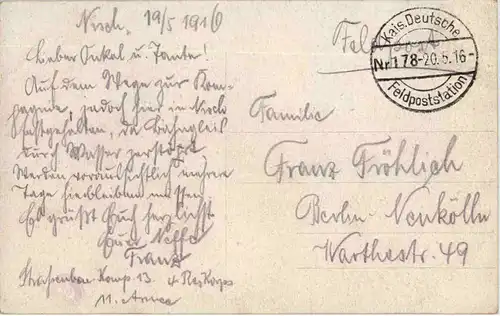 Nisch, 19/5 1916
Lieber Onkel u. Tante!
Auf dem Wege zur Kom-
pagnie, jedoch hier in Nisch
festgehalten, da Bahngleis
durch Wasser zerstört
Werden voraussichtlich mehrere
Tage hierbleiben müssen
Es grüßt Euch herzlichst
Euer Neffe
Franz
Straßenbau-Komp. 13. 4 Res Korps
11. Armee
Feldpost
Kais. Deutsche
Nr 178 -20.5.16-
Feldpoststation
Familie
Franz Fröhlich
Berlin-Neukölln
Warthestr. 49